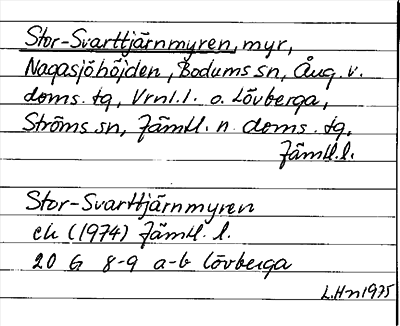 Stor-Svarttjärnmyren, myr,
Nagasjöhöjden, Bodums sn, Ång. v.
doms. tg, Vrnl.l. o. Lövberga,
Ströms sn, Jämtl. n. doms. tg,
Jämtl.l.
Stor-Svarttjärnmyren
ek (1974) Jämtl. l.
20 G 8-9 a-b Lövberga
L.Hn 1975